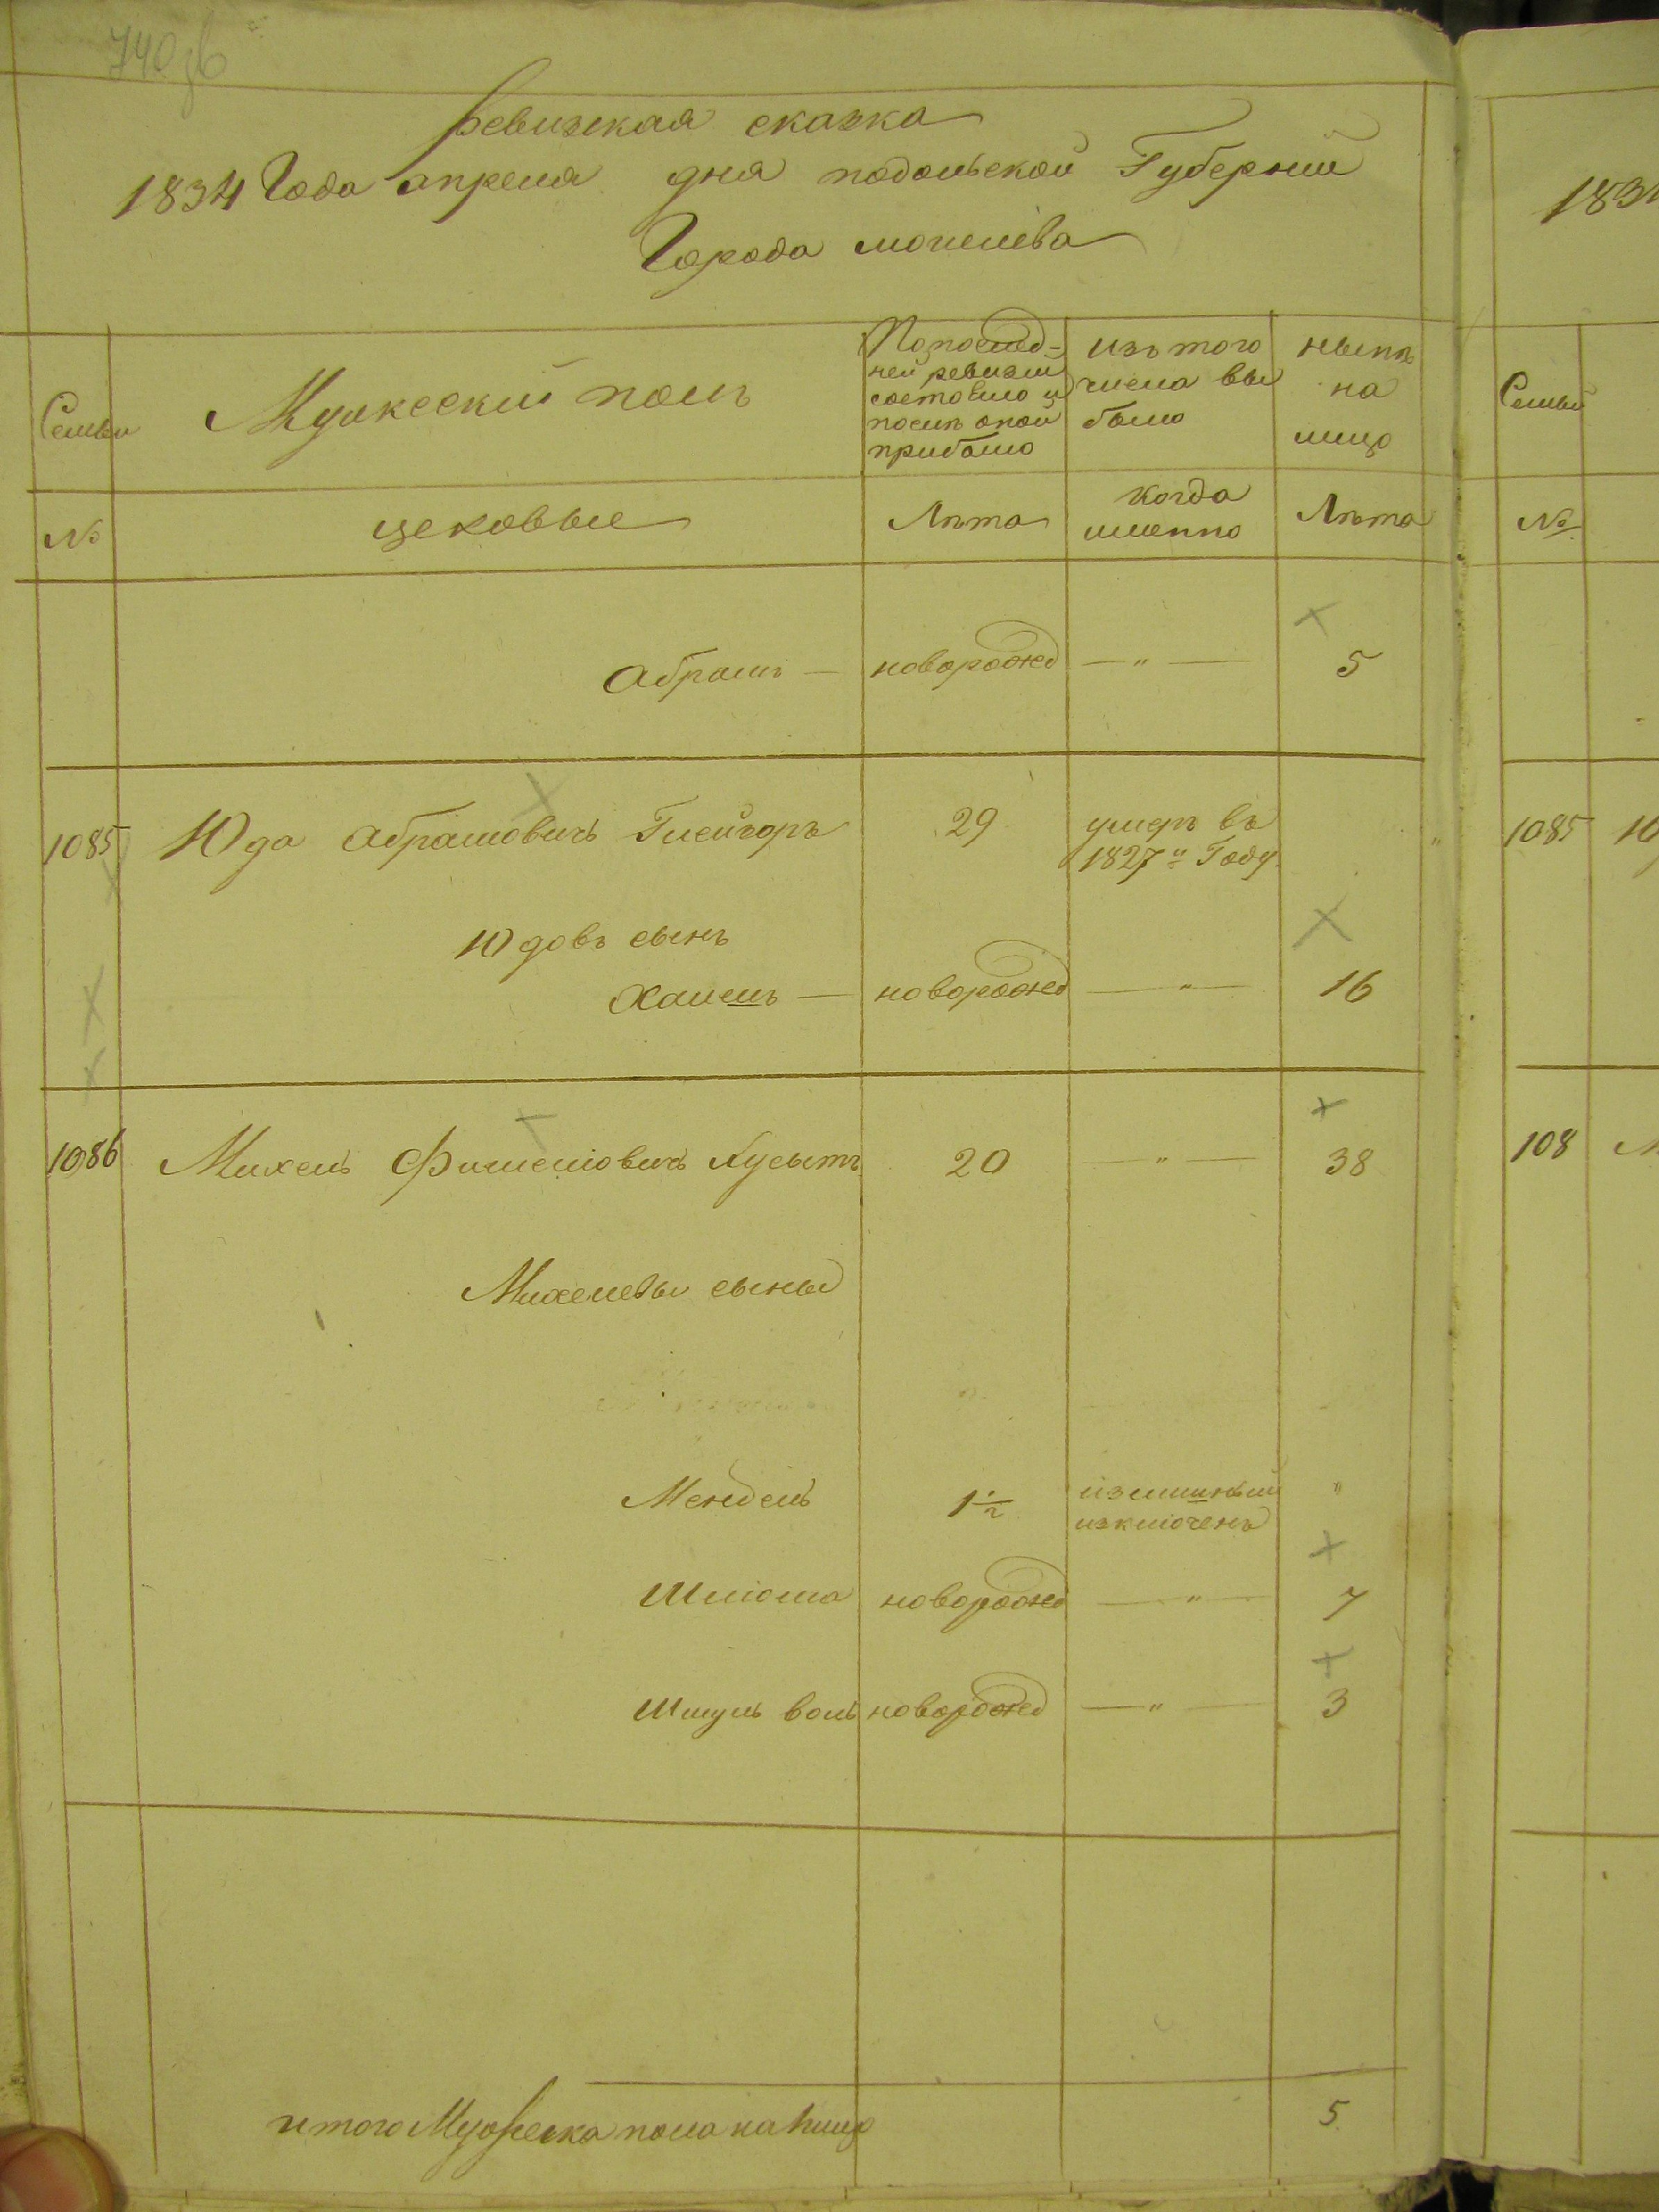 740зв
Ревизская сказка
1834 Года апреля дня подольской Губернии
Города могилева
Семьи
Мужеский полъ
По послед-
ней ревизии
состояло и
после оной
прибыло
изъ того
числа вы
было
ныне
на
лицо
№
цеховые
Лета
когда
именно
Лета
Абрамъ — новорожд — " — 5
1085 Юда Абрамовичъ 29 умеръ въ
1827 Году "
Юдовъ сынъ
Хаимъ — новорожд — " — 16
1086 Михель Фишелiовичъ 20 — " — 38
Михелевы сыны
Мендель 1½ излишный "
изключенъ
Шлiома новорожд — " — 7
Шмуль волъ новорожд — " — 3
итого Мужеска пола на лицо 5
183
Семьи
№
1085 Ю
108 М